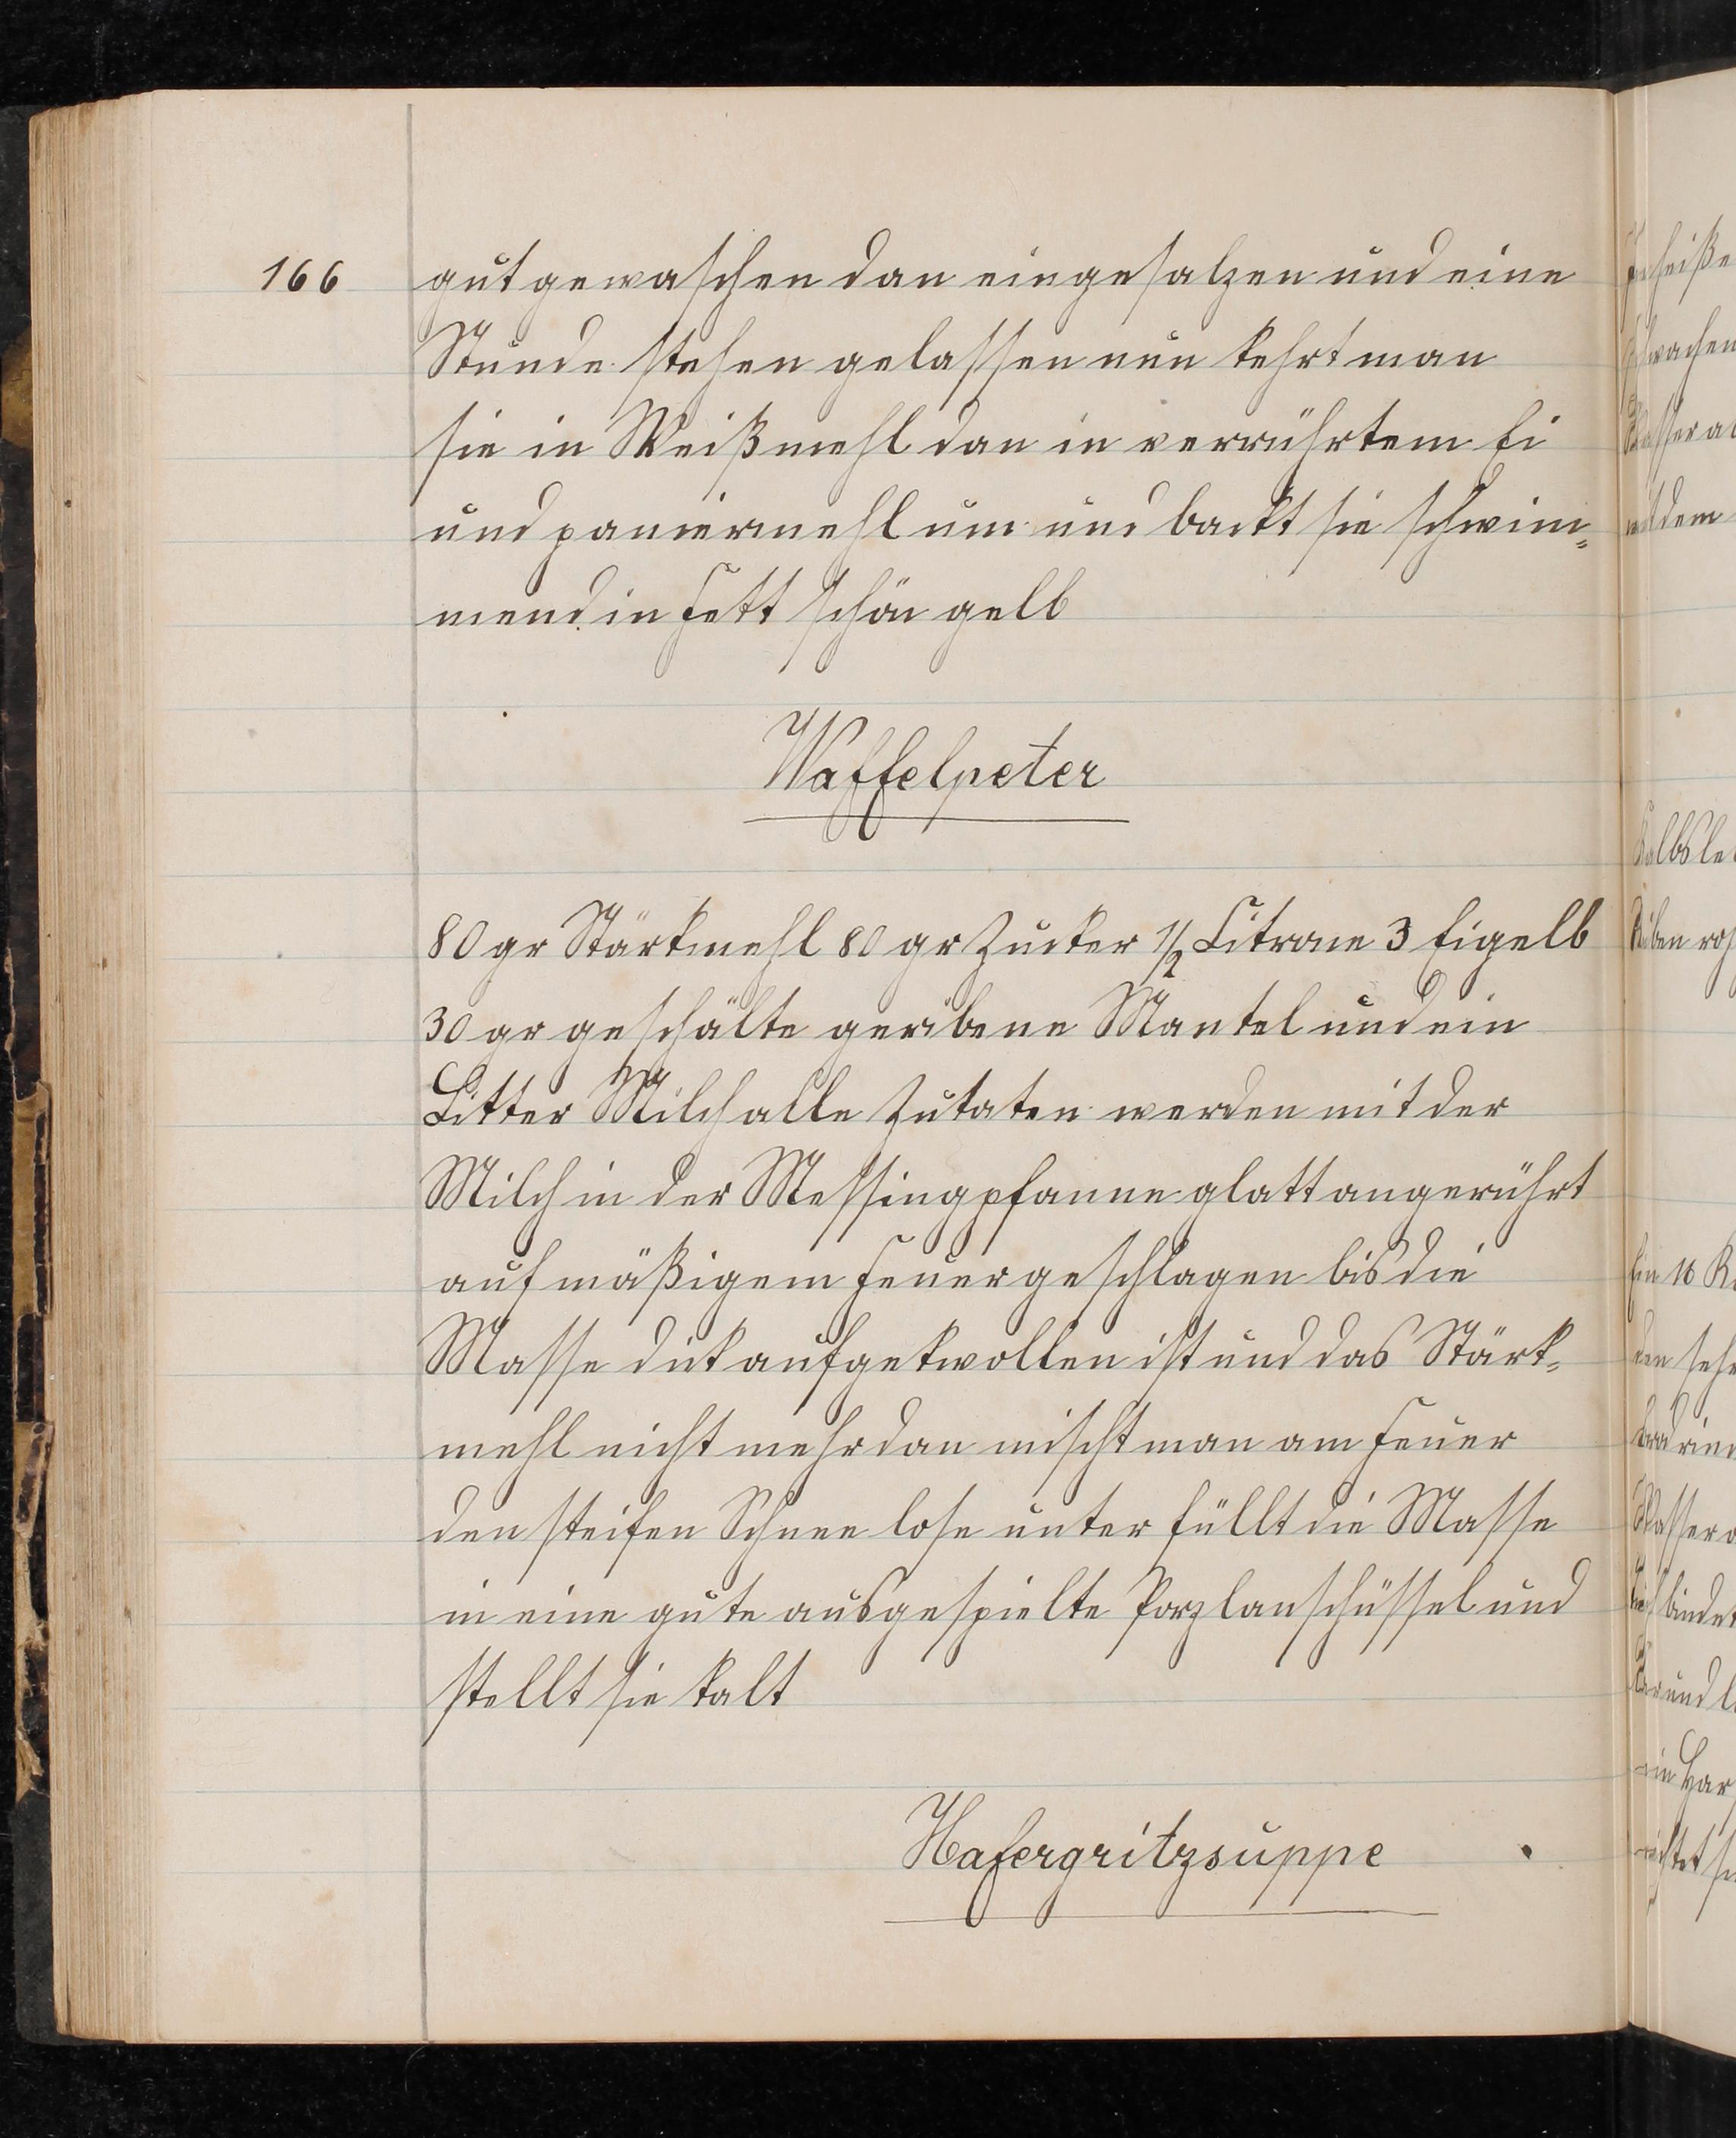 166
gut gewaschen dan eingesalzen und eine
Stunde stehen gelassen nun kehrt man
sie in Weißmehl dan in verrührtem Ei
und paniermehl um und backt sie schwim=
mend in Fett schön gelb
Waffelpeter
80 gr Stärkmehl 80 gr Zucker 1/2 Citrone 3 Eigelb
30 gr geschälte geribene Mantel und ein
Litter Milch alle Zutaten werden mit der
Milch in der Messingpfanne glatt angerührt
auf mäßigem Feuer geschlagen bis die
Masse dick aufgekwollen ist und das Stärk=
mehl nicht mehr dan mischt man am Feuer
den steifen Schnee lose unter füllt die Masse
in eine gute ausgespielte Porzlanschüssel und
stellt sie kalt
Hafergritzsuppe